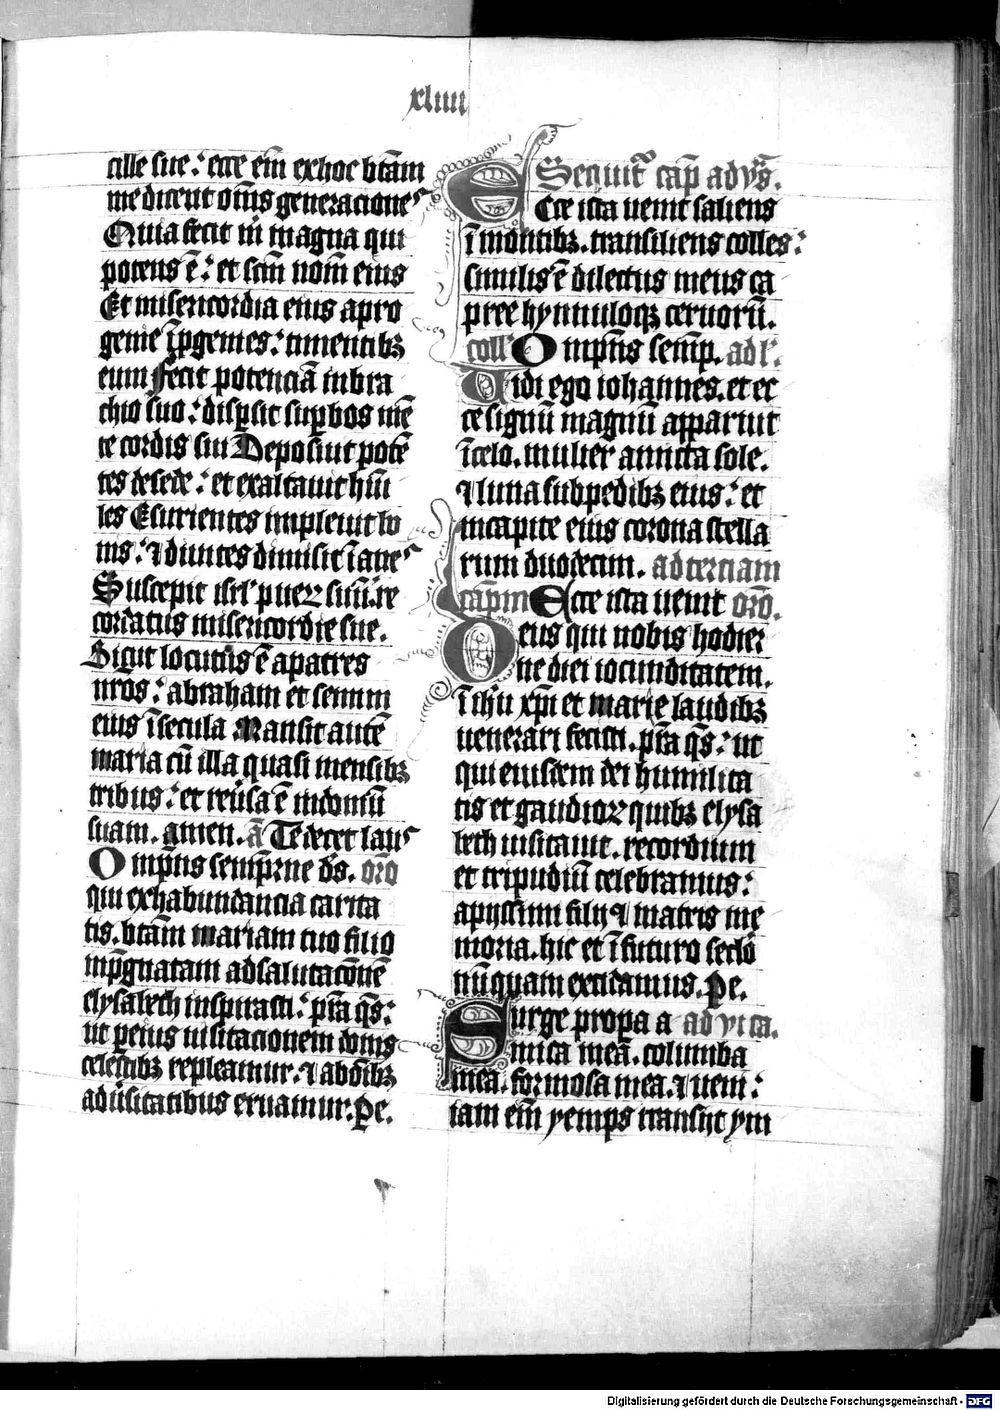 xliiii
cille sue: ecce em̄ exhoc btām
me dicent om̄s generaciones
Quia fecit m̄ magna qui
potens ē: et scm̄ nom̄ eius
Et misericordia eius apro
genie ī pgenies: timentibꝫ
eum Fecit potenciā inbra
chio suo: dispsit supbos mē
te cordis sui Deposuit potē
tes desede: et exaltauit hūi
les Esurientes impleuit bo
nis: ⁊ diuites dimisit īanes
Suscepit isrl' pueꝝ suū: re
cordatus misericordie sue.
Sicut locutus ē apatres
nros: abraham et semini
eius īsecula Mansit autē
maria cū illa quasi mensibꝫ
tribus: et reūsa ē indomū
suam. amen. ā Te decet laus
Omp̄ns semp̄rne ds̄. oro̅
qui exhabundancia carita
tis. btām mariam tuo filio
inp̄gnatam adsalutacōnē
elysabeth inspirasti: pr̄a qs̄:
ut p eius uisitacionem donis
celestibꝫ repleamur. ⁊ abōībꝫ
adūsitatibus eruamur. Pe.
Sequit᷑ cap̄ ad vs̄.
Ecce ista uenit saliens
ī montibꝫ. transiliens colles:
similis ē dilectus meus ca
pree hynnuloqꝫ ceruorū.
coll' Omp̄ns semp̄. ad l'.
Uidi ego iohannes. et ec
ce signū magnū apparuit
īcelo. mulier amicta sole.
⁊ luna subpedibꝫ eius: et
incapite eius corona stella
rum duodecim. ad terciam
cap̄m Ecce ista uenit oro̅.
Deus qui nobis hodier
ne diei iocunditatem.
ī ihū xp̄i et marie laudibꝫ
uenerari fecisti. pr̄a qs̄: ut
qui eiusdem dei humilita
tis et gaudioꝝ quibꝫ elysa
beth uisitauit. recordium
et tripudiū celebramus:
apijssimi filij ⁊ matris me
moria. hic et ī futuro seclo
nūquam excidamus. Pe.
Surge propa a ad vi ca.
mica mea. columba
mea. formosa mea. ⁊ ueni:
iam em̄ yemps transijt ym
Digitalisierung gefördert durch die Deutsche Forschungsgemeinschaft - DFG